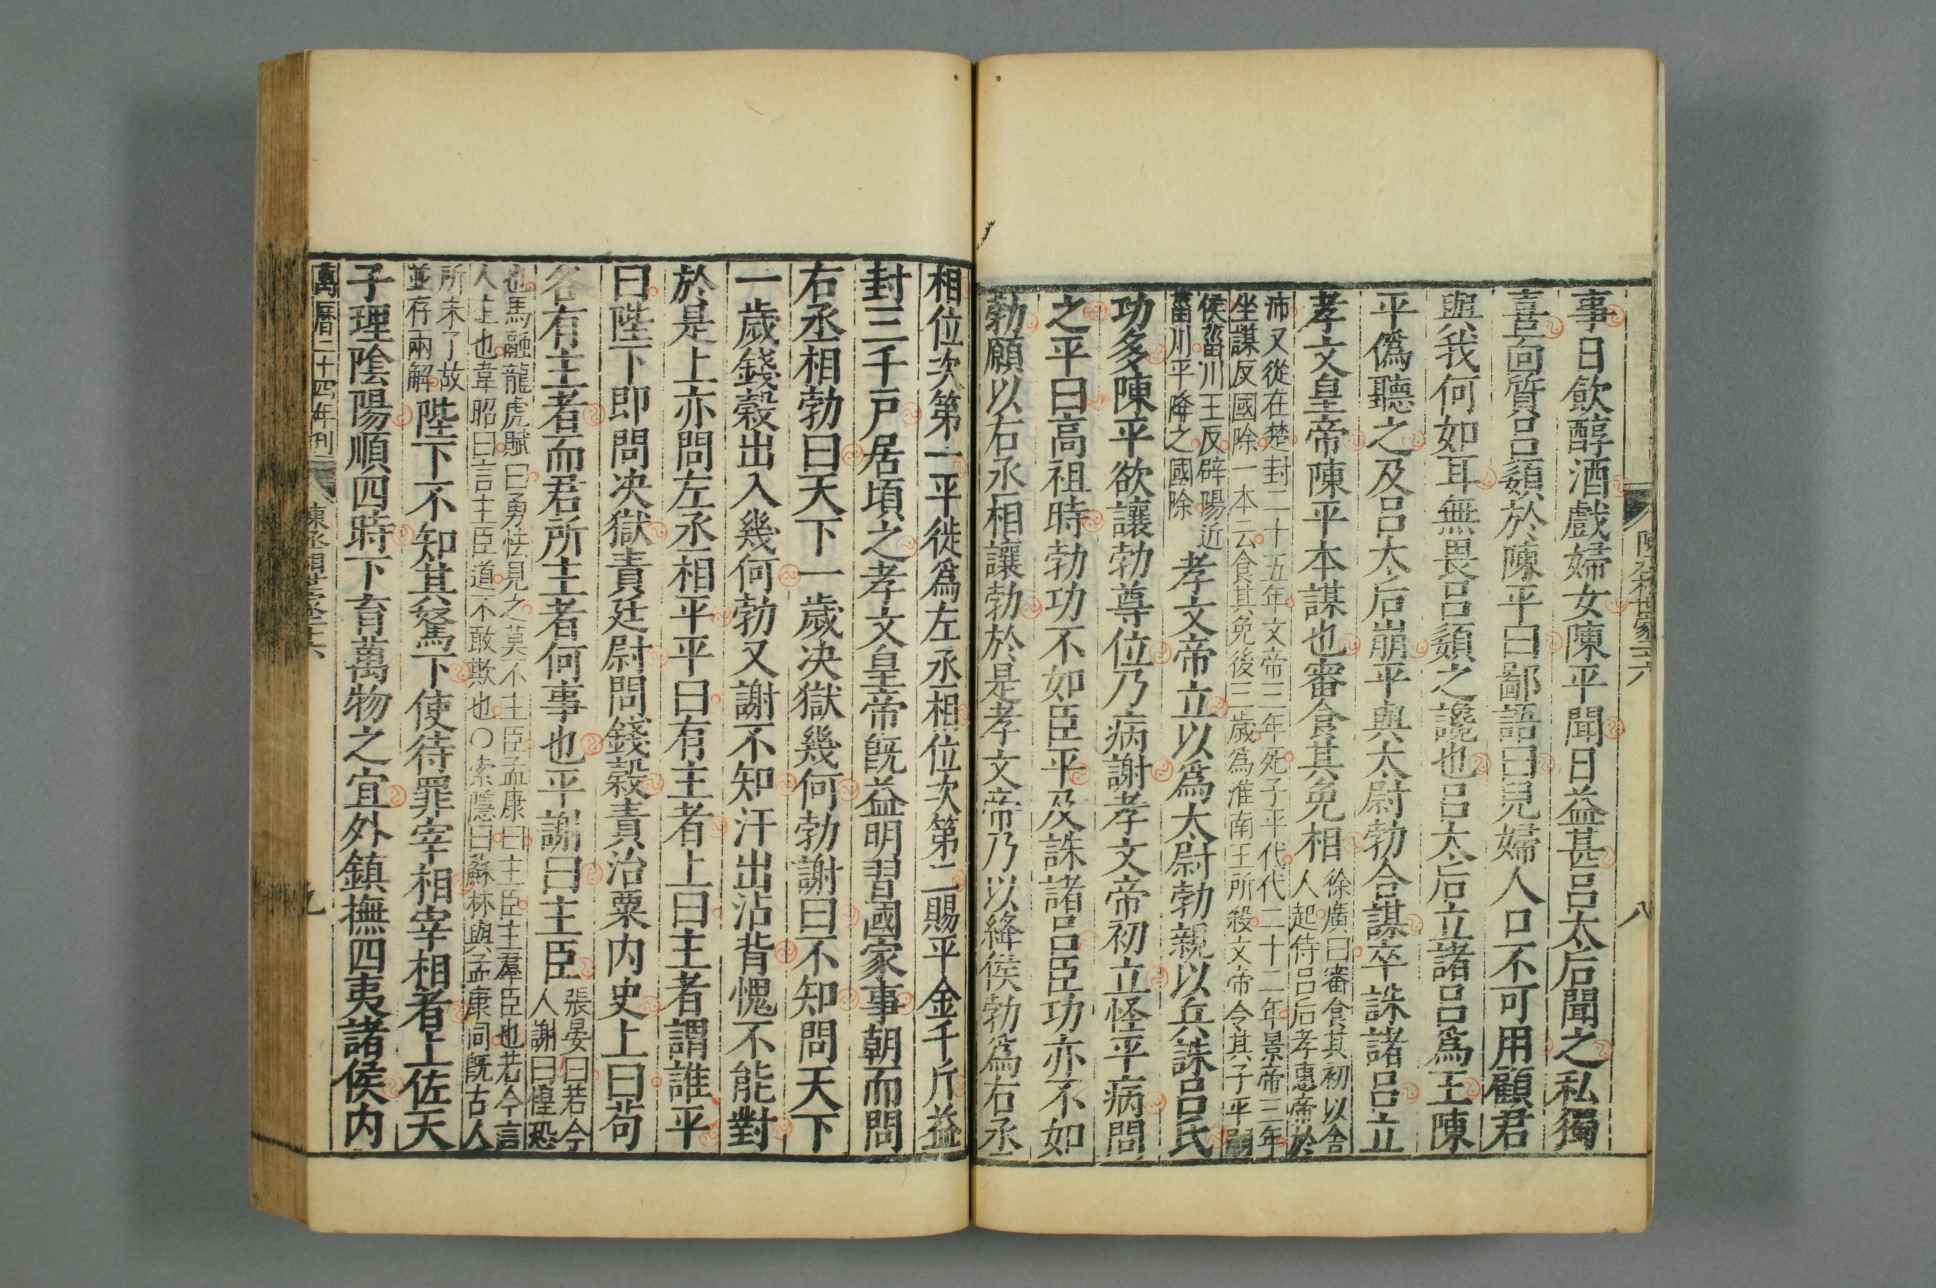 陳丞相世家二十六
八
事日飲醇酒戲婦女陳平聞日益甚呂太后聞之私獨
喜面質呂嬃於陳平曰鄙語曰兒婦人口不可用顧君
與我何如耳無畏呂嬃之讒也呂太后立諸呂爲王陳
平僞聽之及呂太后崩平與太尉勃合謀卒誅諸呂立
孝文皇帝陳平本謀也審食其免相
徐廣曰審食其初以舍
人起侍呂后孝惠帝於
沛又從在楚封二十五年文帝三年死子平代代二十二年景帝三年
坐謀反國除一本云食其免後三歲為淮南王所殺文帝令其子平嗣
侯菑川王反辟陽近
菑川平降之國除
孝文帝立以爲太尉勃親以兵誅呂氏
功多陳平欲讓勃尊位乃病謝孝文帝初立怪平病問
之平曰高祖時勃功不如臣平及誅諸呂臣功亦不如
勃願以右丞相讓勃於是孝文帝乃以絳侯勃爲右丞
相位次第一平徙爲左丞相位次第二賜平金千斤益
封三千戶居頃之孝文皇帝旣益明習國家事朝而問
右丞相勃曰天下一歲決獄幾何勃謝曰不知問天下
一歲錢穀出入幾何勃又謝不知汗出沾背愧不能對
於是上亦問左丞相平平曰有主者上曰主者謂誰平
曰陛下即問決獄責廷尉問錢穀責治粟內史上曰苟
各有主者而君所主者何事也平謝曰主臣
張晏曰若今
人謝曰惶恐
也馬融龍虎賦曰勇怯見之莫不主臣孟康曰主臣主羣臣也若今言
人主也韋昭曰言主臣道不敢欺也○索隱曰蘇林與孟康同旣古人
所未了故
並存兩解
陛下不知其駑下使待罪宰相宰相者上佐天
子理陰陽順四時下育萬物之宜外鎮撫四夷諸侯內
萬曆二十四年刊
陳丞相世家二十六
九